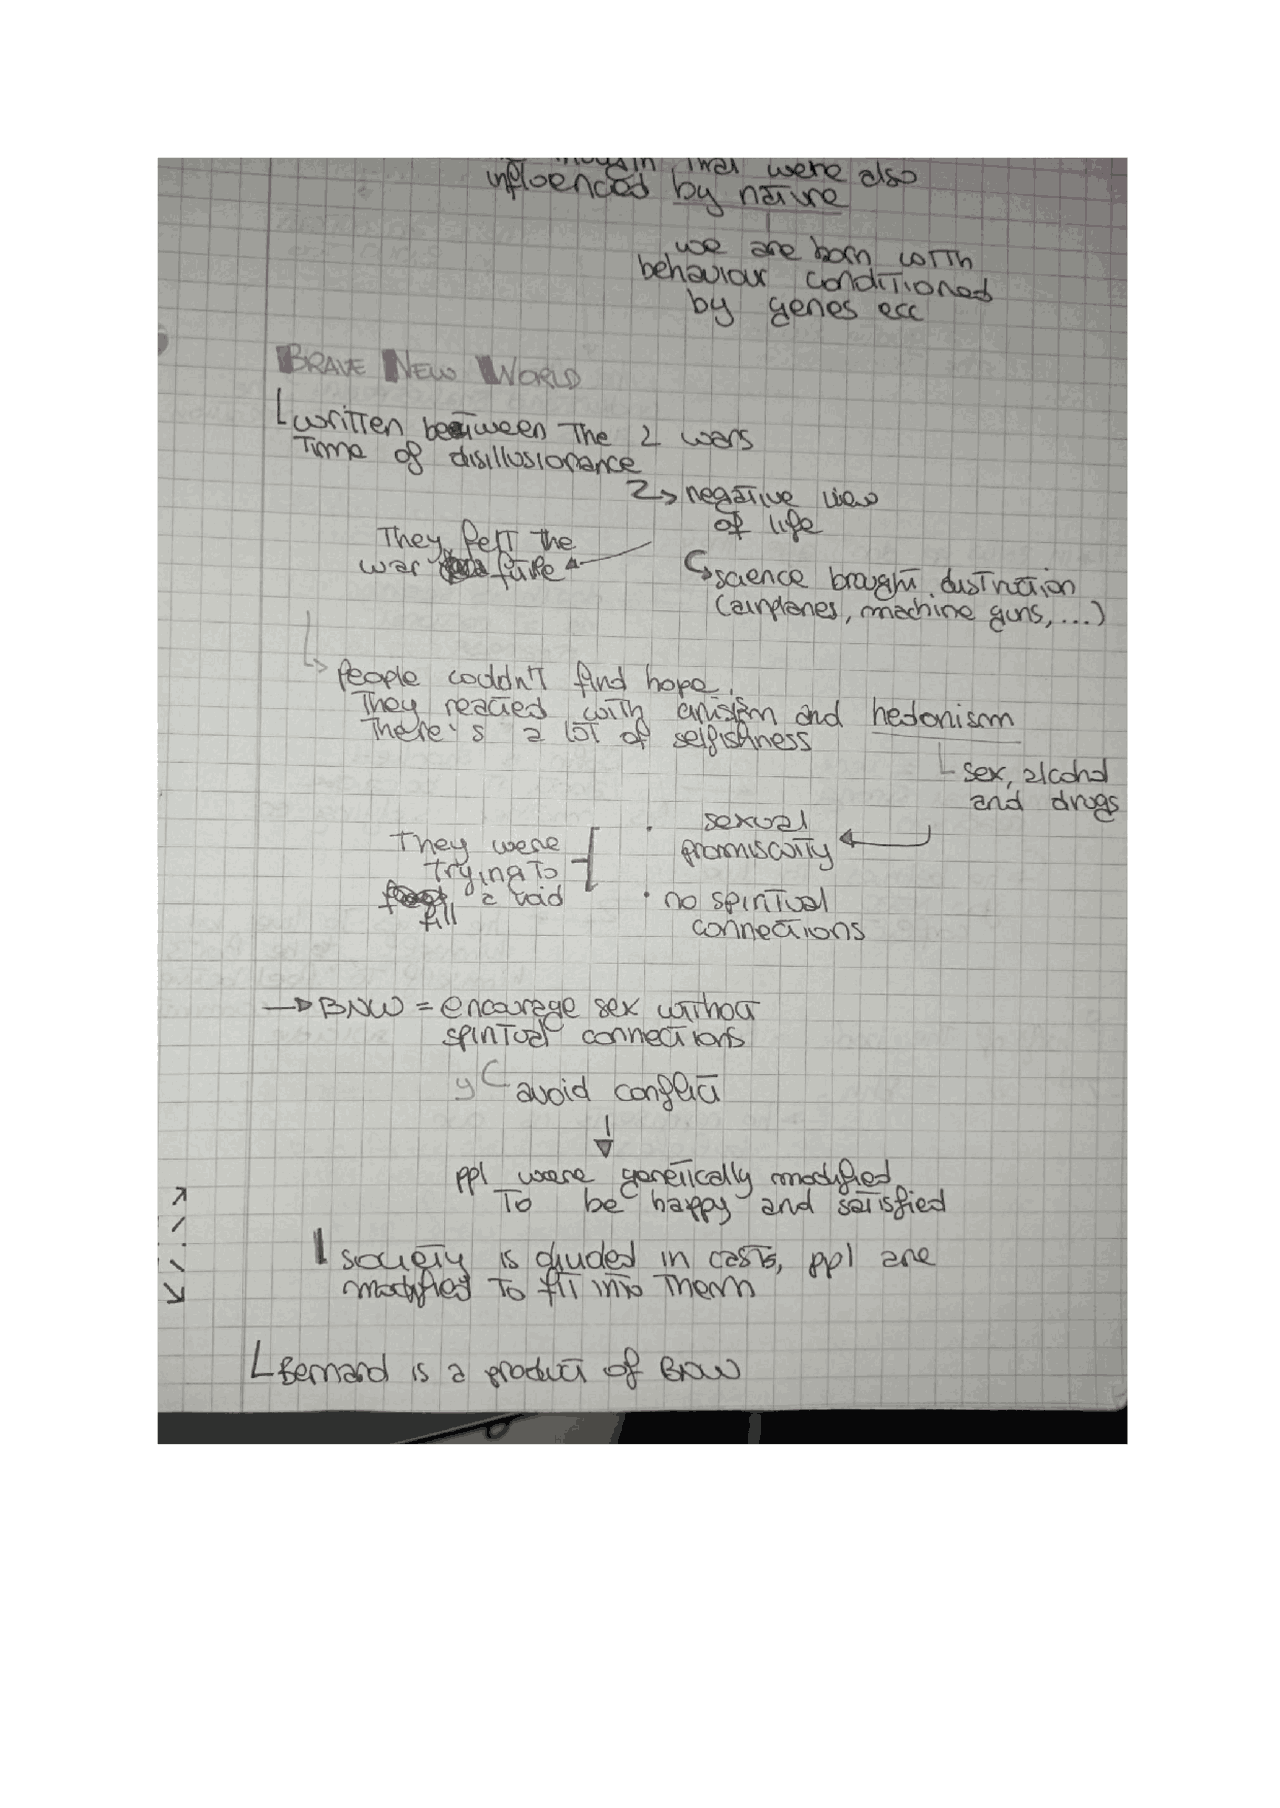 that were also
influenced by nature
we are born with
behaviour conditioned
by genes ecc
BRAVE NEW WORLD
written between the 2 wars
Time of disillusionance
negative view
of life
They felt the
war futile
science brought distruction
(airplanes, machine guns, ...)
People couldn't find hope.
They reacted with and hedonism
There's a lot of selfishness
sex, alcohol
and drugs
sexual
promiscuity
They were
trying to
fill a void
no spiritual
connections
BNW = encourage sex without
spiritual connections
avoid conflict
ppl were genetically modified
To be happy and satisfied
society is divided in casts, ppl are
modified to fit into them
Bernard is a product of BNW